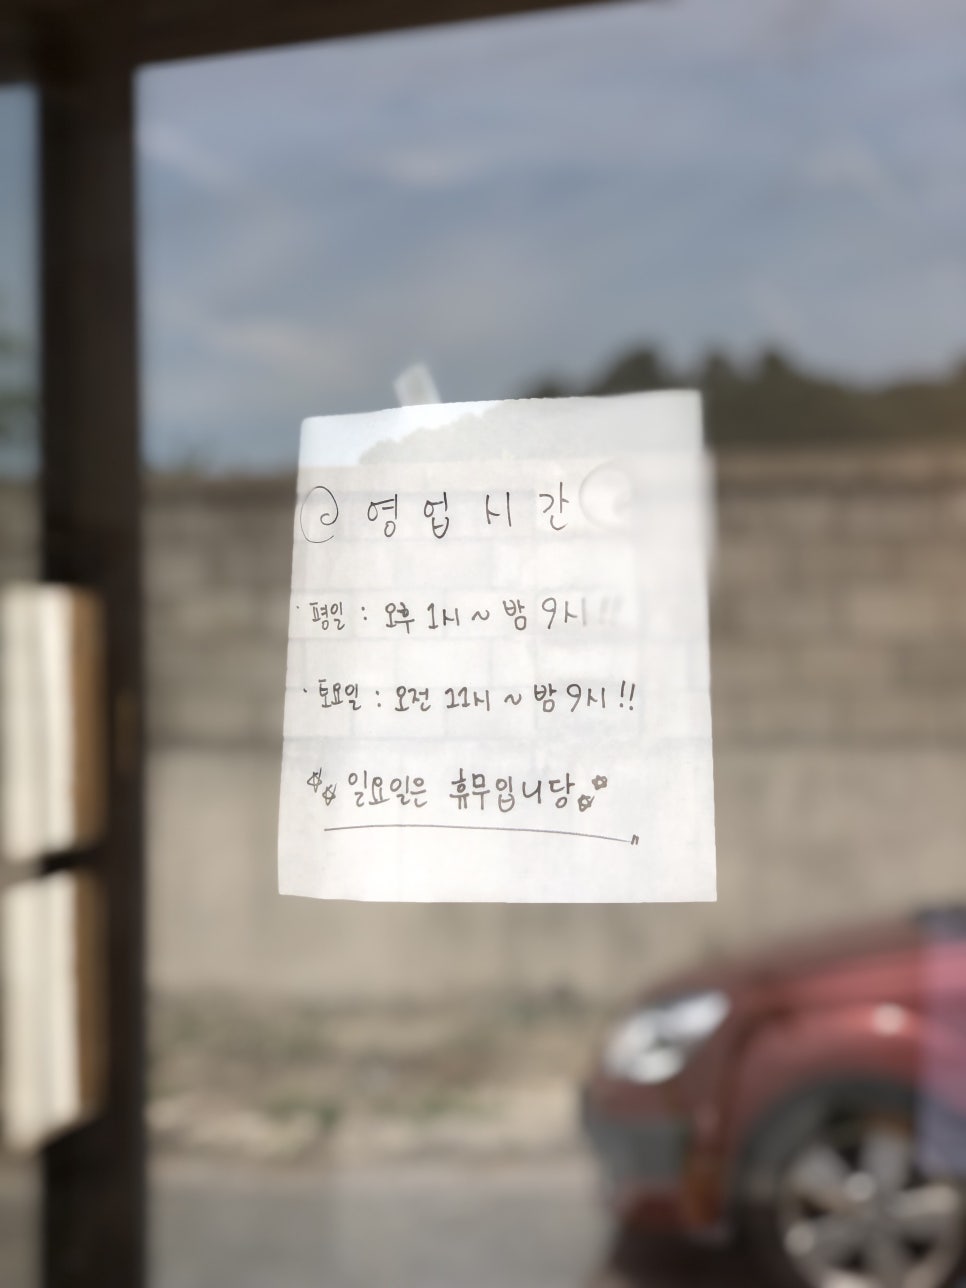 영업시간
· 평일 : 오후 1시 ~ 밤 9시!!
· 토요일 : 오전 11시 ~ 밤 9시!!
일요일은 휴무입니당